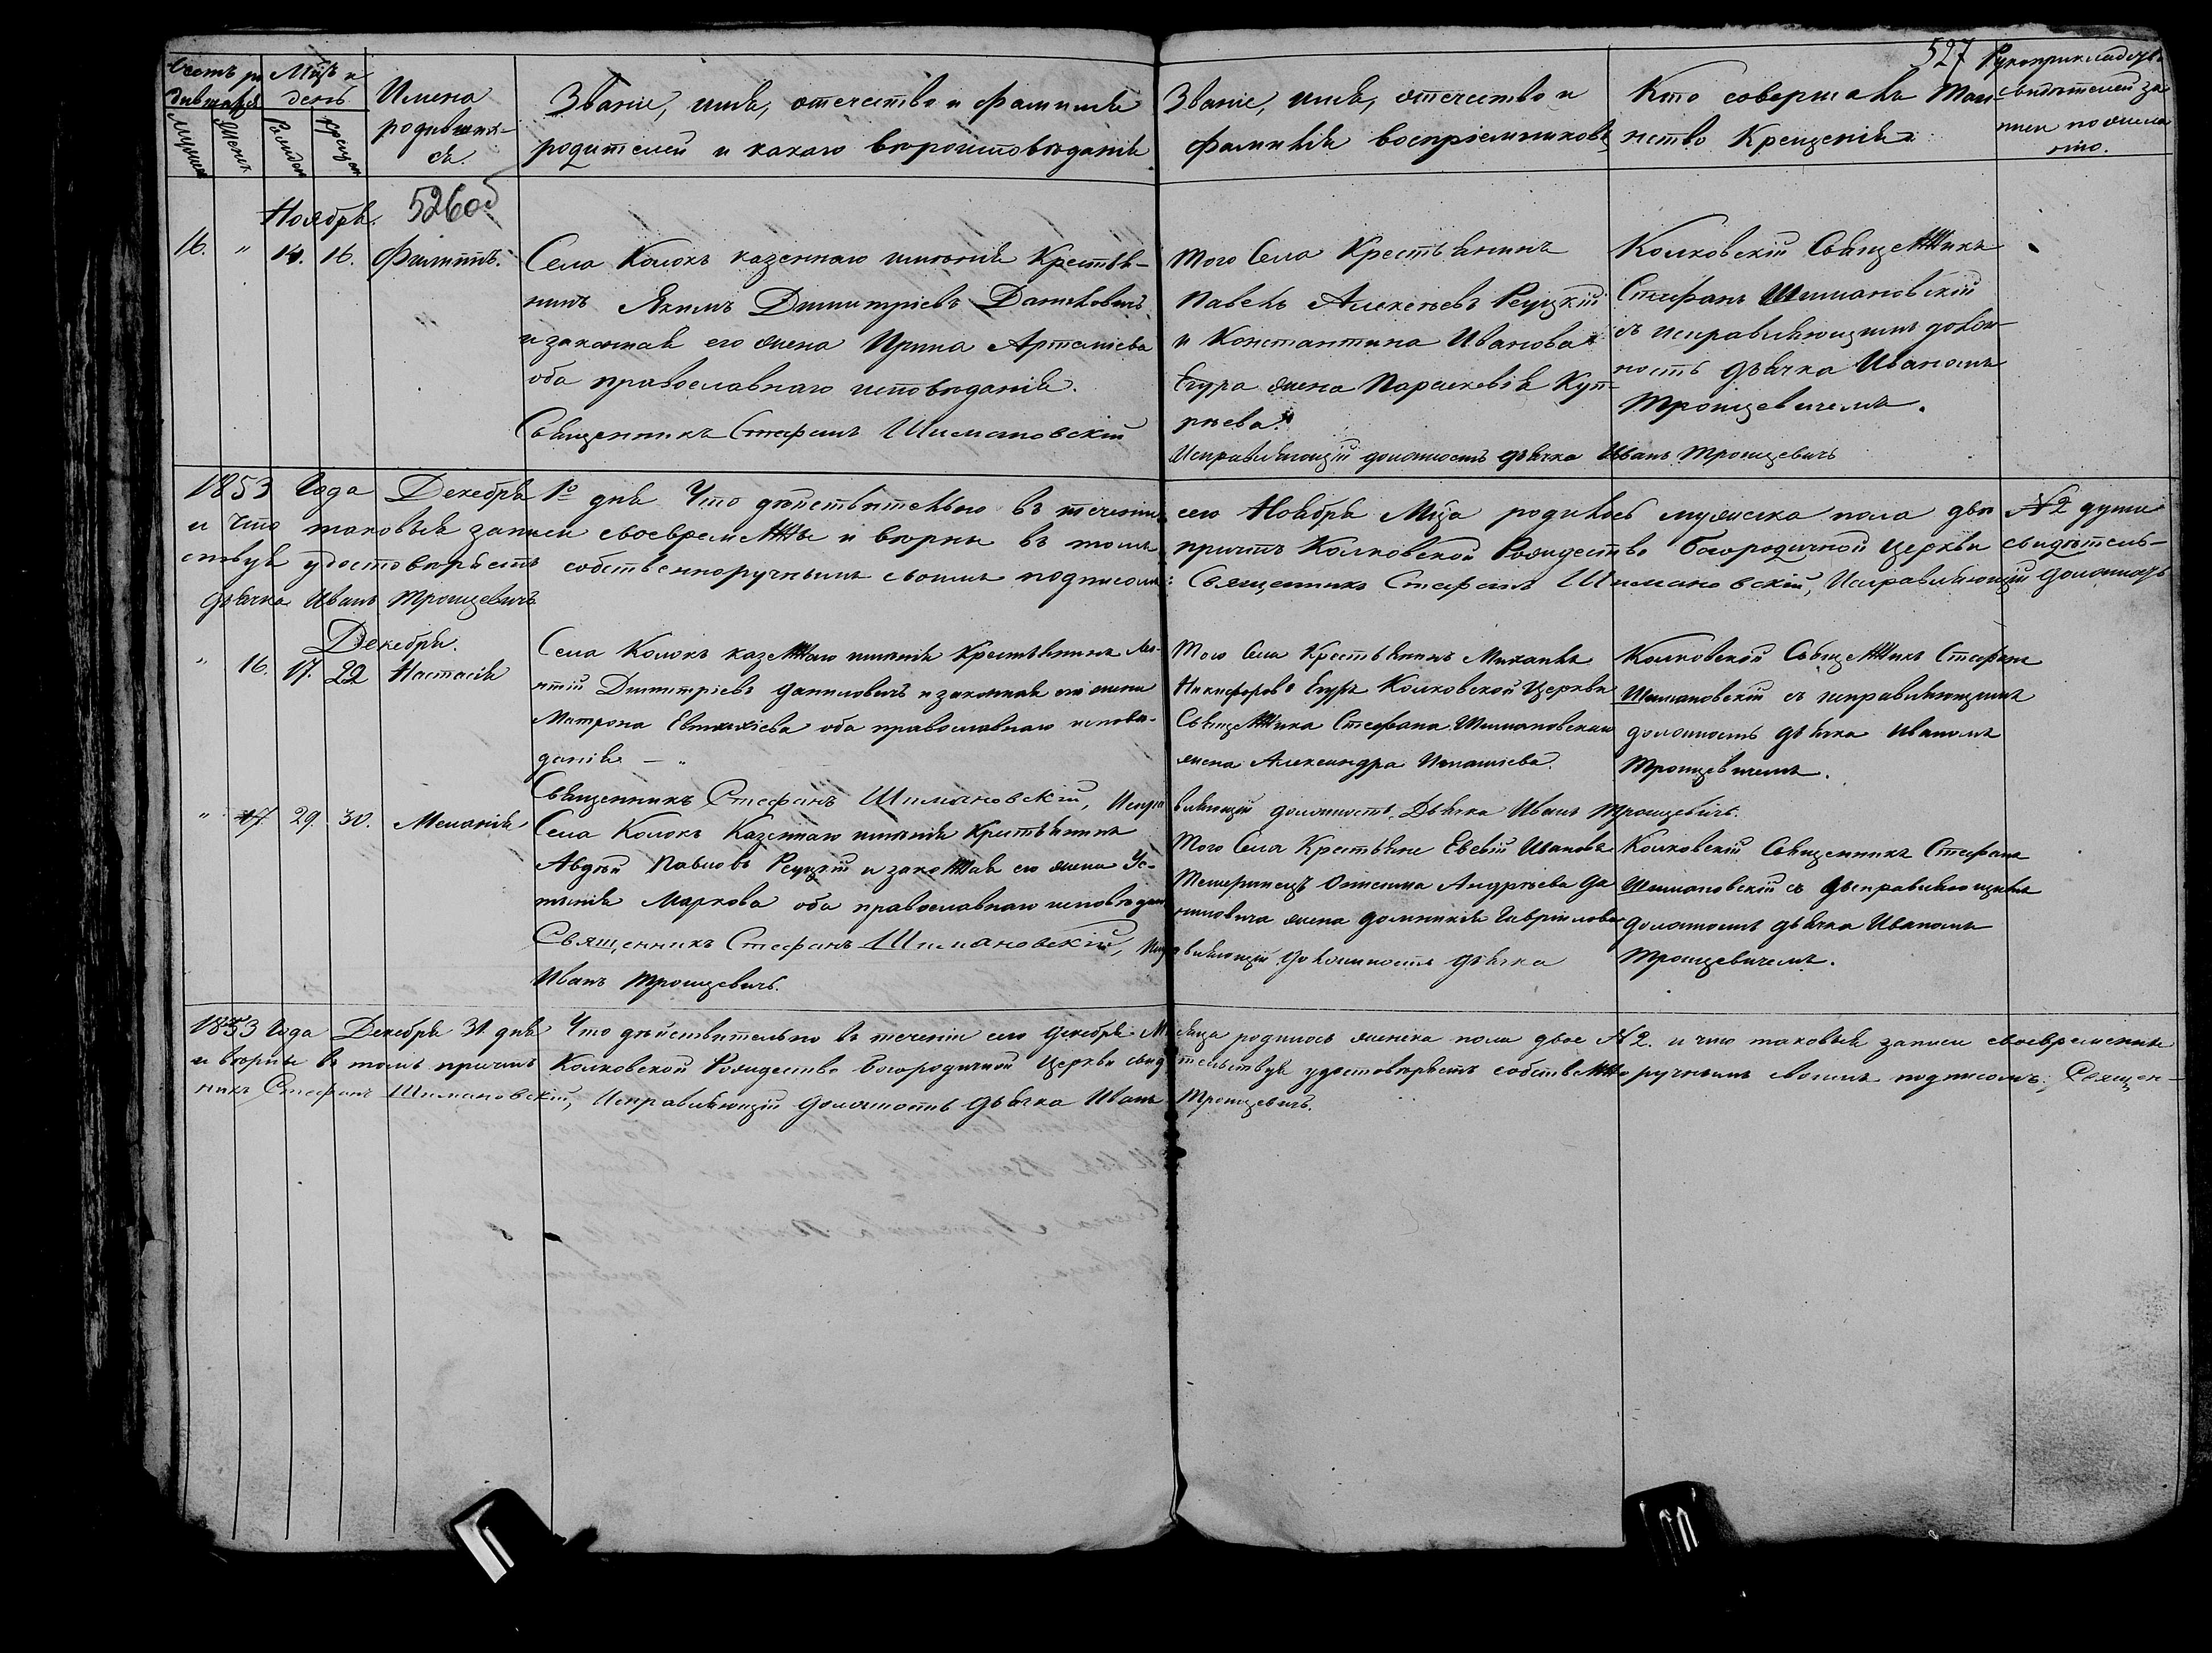 527
Счетъ ро Мцъ и
дившихся день Имена Званіе, имя, отечество и фамилія Званіе, имя, отечество и Кто совершалъ Таи- Рукоприкладство
родивших- родителей и какаго вѣроисповѣданія фамилія воспріемниковъ нство Крещенія свидѣтелей за
ся писи по жела
нію.
Мужеск Женск Рожден Крещен
Ноября. 526об
16. " 14. 16. Филиппъ. Села Колокъ казеннаго имѣнія Крестья-
нинъ Якимъ Димитріевъ Даниловичъ
и законная его жена Ирина Артеміева
оба православнаго исповѣданія.
Священникъ Стефанъ Шимановскій
Того Села Крестьянинъ
Павелъ Алексѣевъ Реуцкій
и Константина Иванова
Бгура жена Параскевія Куп-
рѣева.
Исправляющій должность дьячка Иванъ Троицевичъ
Колковскій Священникъ
Стефанъ Шимановскій
съ исправляющимъ долж-
ность дьячка Иваномъ
Троицевичемъ.
1853 Года Декабря 1о дня Что дѣйствительно въ теченіи сего Ноября Мца родилось мужеска пола двѣ №2 души
и что таковыя записи своевременны и вѣрны въ томъ причтъ Колковской Рождество Богородичной Церкви свидѣтель-
ствуя удостовѣряетъ собственноручнымъ своимъ подписомъ: Священникъ Стефанъ Шимановскій, Исправляющій должность
дьячка Иванъ Троицевичъ
Декабря.
" 16. 17. 22 Настасія Села Колокъ казеннаго имѣнія Крестьянинъ
Димитріевъ Даниловичъ и законная его жена
Матрона Евтихіева оба православнаго исповѣ-
данія — "
Священникъ Стефанъ Шимановскій, Испра
Того Села Крестьянинъ Михаилъ
Никифоровъ Бгуръ Колковской Церкви
Священника Стефана Шимановскаго
жена Александра Игнатіева.
вляющій должность Дьячка Иванъ Троицевичъ.
Колковской Священникъ Стефанъ
Шимановскій съ исправляющимъ
должность дьячка Иваномъ
Троицевичемъ.
" 17. 29. 30. Меланія Села Колокъ Казеннаго имѣнія Крестьянинъ
Авдѣй Павловъ Реуцкій и законная его жена Ус-
тинія Маркова оба православнаго исповѣдан
Священникъ Стефанъ Шимановскій, Испра
Иванъ Троицевичъ.
Того Села Крестьяне Евсевій Ивановъ
Онисима Андрѣева Да
ниловича жена Домникія Гавріилова
вляющій должность дьячка
Колковскій Священникъ Стефанъ
Шимановскій съ исправляющимъ
должность дьячка Иваномъ
Троицевичемъ.
1853 Года Декабря 31. дня Что дѣйствительно въ теченіи сего Декабря Мѣсяца родилось женска пола двое №2. и что таковыя записи своевременны
и вѣрны въ томъ причтъ Колковской Рождество Богородичной Церкви свидѣтельствуя удостовѣряетъ собственноручнымъ своимъ подписомъ; Священ-
никъ Стефанъ Шимановскій, Исправляющій должность дьячка Иванъ Троицевичъ.